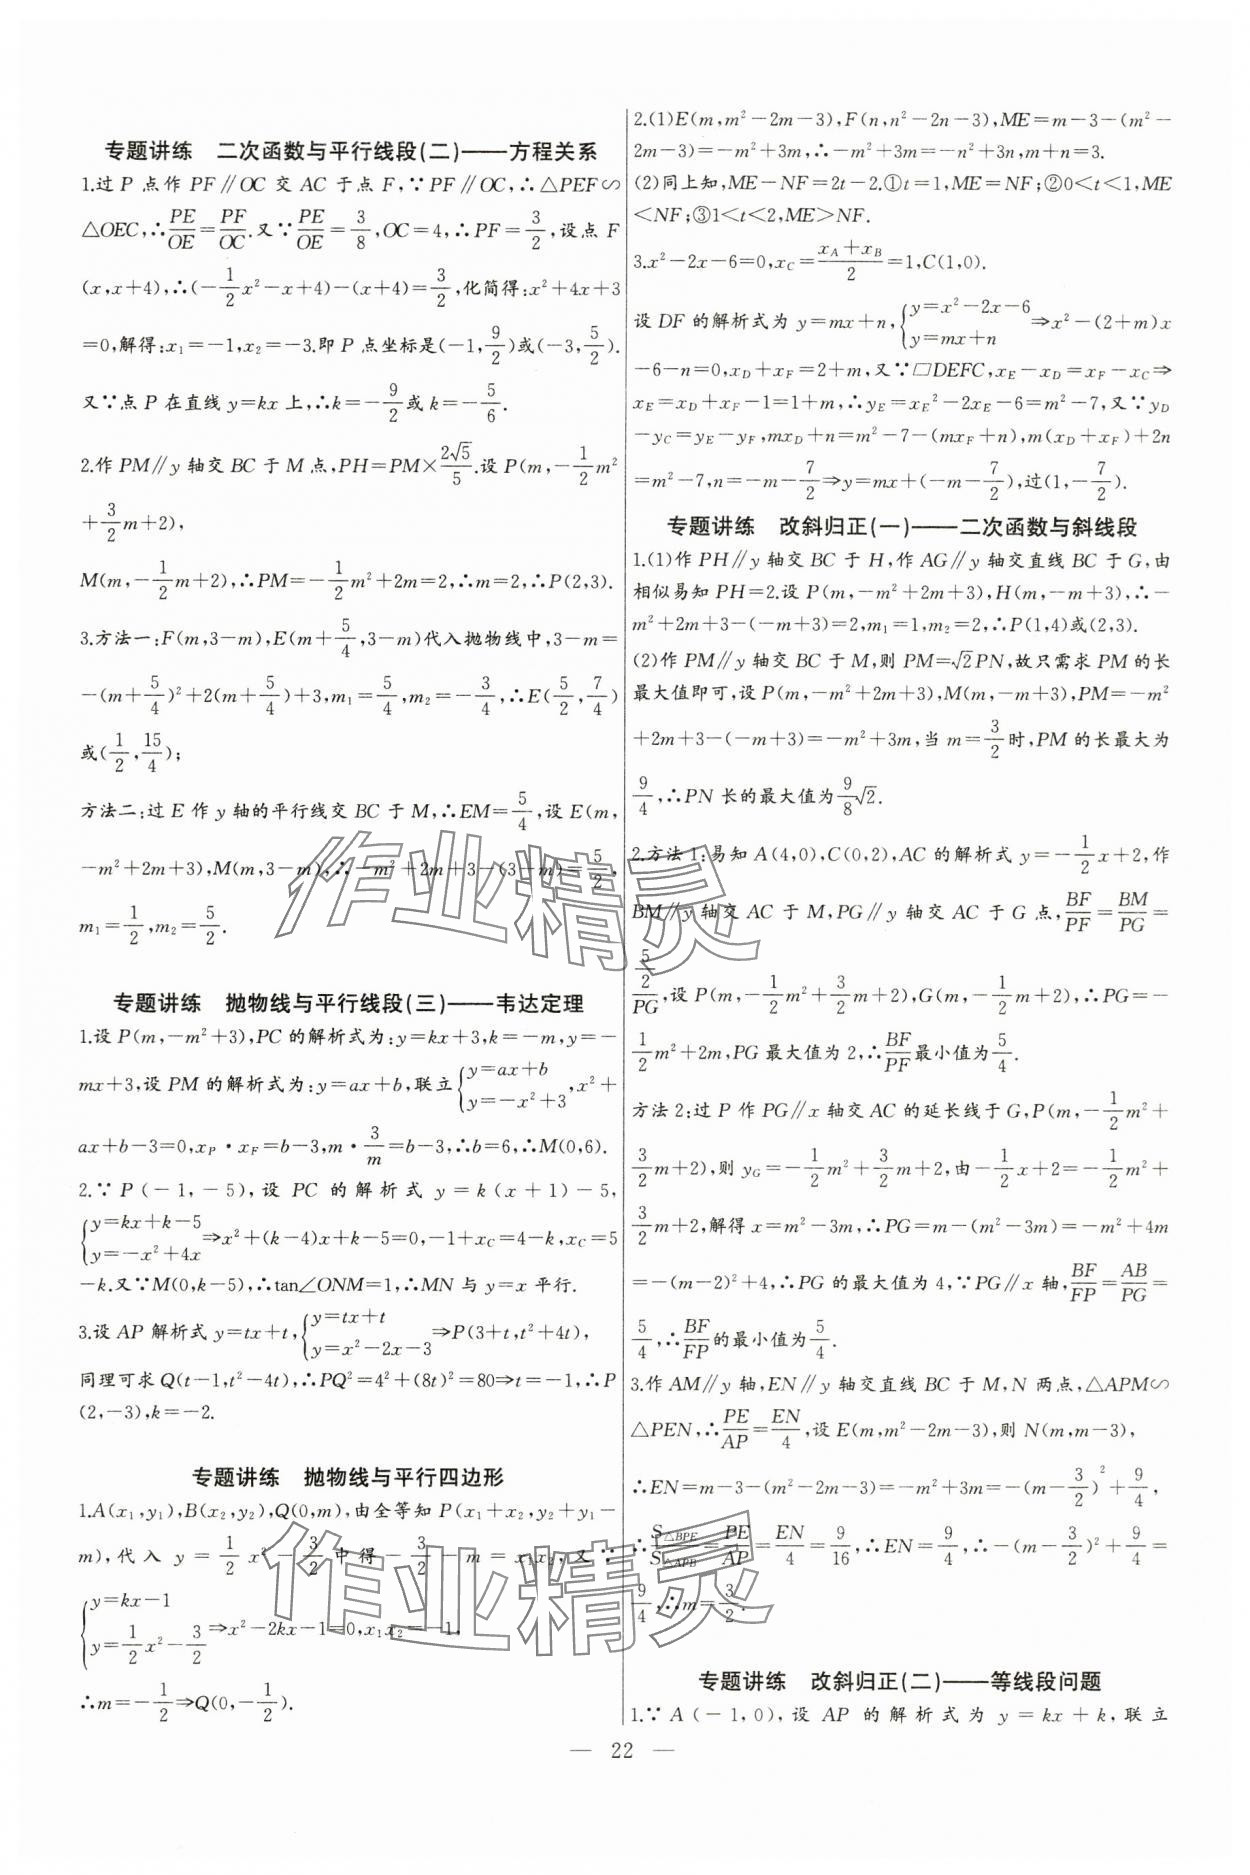 专题讲练 二次函数与平行线段(二)——方程关系
1.过 P 点作 PF∥OC 交 AC 于点 F,∵PF∥OC,∴△PEF∽
△OEC,∴PE/OE=PF/OC.又∵PE/OE=3/8,OC=4,∴PF=3/2,设点 F
(x,x+4),∴(-1/2x²-x+4)-(x+4)=3/2,化简得:x²+4x+3
=0,解得:x₁=-1,x₂=-3.即 P 点坐标是(-1,9/2)或(-3,5/2).
又∵点 P 在直线 y=kx 上,∴k=-9/2或k=-5/6.
2.作 PM∥y 轴交 BC 于 M 点,PH=PM×2√5/5.设 P(m,-1/2m²
+3/2m+2),
M(m,-1/2m+2),∴PM=-1/2m²+2m=2,∴m=2,∴P(2,3).
3.方法一:F(m,3-m),E(m+5/4,3-m)代入抛物线中,3-m=
-(m+5/4)²+2(m+5/4)+3,m₁=5/4,m₂=-3/4,∴E(5/2,7/4)
或(1/2,15/4);
方法二:过 E 作 y 轴的平行线交 BC 于 M,∴EM=5/4,设 E(m,
-m²+2m+3),M(m,3-m),∴-m²+2m+3-(3-m)=5/2,
m₁=1/2,m₂=5/2.
专题讲练 抛物线与平行线段(三)——韦达定理
1.设 P(m,-m²+3),PC 的解析式为:y=kx+3,k=-m,y=-
mx+3,设 PM 的解析式为:y=ax+b,联立{y=ax+b y=-x²+3,x²+
ax+b-3=0,x_P·x_F=b-3,m·3/m=b-3,∴b=6,∴M(0,6).
2.∵P(-1,-5),设 PC 的解析式 y=k(x+1)-5,
{y=kx+k-5 y=-x²+4x⇒x²+(k-4)x+k-5=0,-1+x_C=4-k,x_C=5
-k.又∵M(0,k-5),∴tan∠ONM=1,∴MN 与 y=x 平行.
3.设 AP 解析式 y=tx+t,{y=tx+t y=x²-2x-3⇒P(3+t,t²+4t),
同理可求 Q(t-1,t²-4t),∴PQ²=4²+(8t)²=80⇒t=-1,∴P
(2,-3),k=-2.
专题讲练 抛物线与平行四边形
1.A(x₁,y₁),B(x₂,y₂),Q(0,m),由全等知 P(x₁+x₂,y₂+y₁-
m),代入 y=1/2x²-3/2中得-3/2-m=x₁x₂,又∵
{y=kx-1 y=1/2x²-3/2⇒x²-2kx-1=0,x₁x₂=-1,
∴m=-1/2⇒Q(0,-1/2).
2.(1)E(m,m²-2m-3),F(n,n²-2n-3),ME=m-3-(m²-
2m-3)=-m²+3m,∴-m²+3m=-n²+3n,m+n=3.
(2)同上知,ME-NF=2t-2.①t=1,ME=NF;②0<t<1,ME
<NF;③1<t<2,ME>NF.
3.x²-2x-6=0,x_C=(x_A+x_B)/2=1,C(1,0).
设 DF 的解析式为 y=mx+n,{y=x²-2x-6 y=mx+n⇒x²-(2+m)x
-6-n=0,x_D+x_F=2+m,又∵□DEFC,x_E-x_D=x_F-x_C⇒
x_E=x_D+x_F-1=1+m,∴y_E=x_E²-2x_E-6=m²-7,又∵y_D
-y_C=y_E-y_F,mx_D+n=m²-7-(mx_F+n),m(x_D+x_F)+2n
=m²-7,n=-m-7/2⇒y=mx+(-m-7/2),过(1,-7/2).
专题讲练 改斜归正(一)——二次函数与斜线段
1.(1)作 PH∥y 轴交 BC 于 H,作 AG∥y 轴交直线 BC 于 G,由
相似易知 PH=2.设 P(m,-m²+2m+3),H(m,-m+3),∴-
m²+2m+3-(-m+3)=2,m₁=1,m₂=2,∴P(1,4)或(2,3).
(2)作 PM∥y 轴交 BC 于 M,则 PM=√2PN,故只需求 PM 的长
最大值即可,设 P(m,-m²+2m+3),M(m,-m+3),PM=-m²
+2m+3-(-m+3)=-m²+3m,当 m=3/2时,PM 的长最大为
9/4,∴PN 长的最大值为9/8√2.
2.方法1:易知 A(4,0),C(0,2),AC 的解析式 y=-1/2x+2,作
BM∥y 轴交 AC 于 M,PG∥y 轴交 AC 于 G 点,BF/PF=BM/PG=
5/2/PG,设 P(m,-1/2m²+3/2m+2),G(m,-1/2m+2),∴PG=-
1/2m²+2m,PG 最大值为 2,∴BF/PF最小值为5/4.
方法 2:过 P 作 PG∥x 轴交 AC 的延长线于 G,P(m,-1/2m²+
3/2m+2),则 y_G=-1/2m²+3/2m+2,由-1/2x+2=-1/2m²+
3/2m+2,解得 x=m²-3m,∴PG=m-(m²-3m)=-m²+4m
=-(m-2)²+4,∴PG 的最大值为 4,∵PG∥x 轴,BF/FP=AB/PG=
5/4,∴BF/FP的最小值为5/4.
3.作 AM∥y 轴,EN∥y 轴交直线 BC 于 M,N 两点,△APM∽
△PEN,∴PE/AP=EN/4,设 E(m,m²-2m-3),则 N(m,m-3),
∴EN=m-3-(m²-2m-3)=-m²+3m=-(m-3/2)²+9/4,
∴S△BPE/S△APB=PE/AP=EN/4=9/16,∴EN=9/4,∴-(m-3/2)²+9/4=
9/4,∴m=3/2.
专题讲练 改斜归正(二)——等线段问题
1.∵A(-1,0),设 AP 的解析式为 y=kx+k,联立
— 22 —
作业精灵
作业精灵